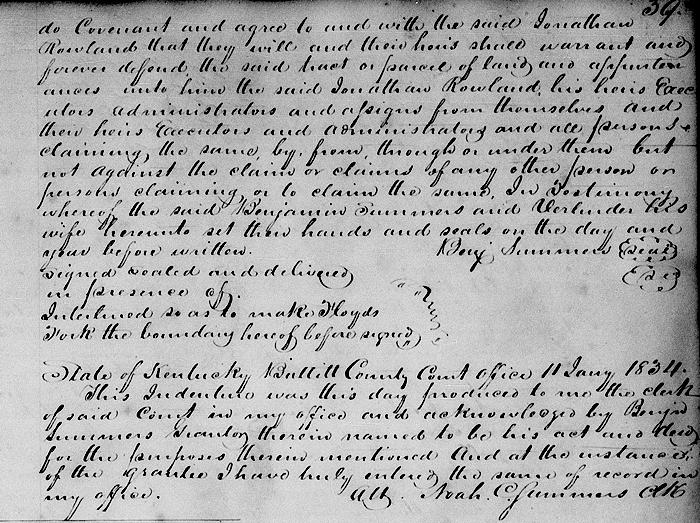 39.
do Covenant and agree to and with the said Jonathan
Rowland that they will and their heirs shall warrant and
forever defend the said tract or parcel of land and appurten
ances unto him the said Jonathan Rowland, his heirs Exec
utors Administrators and assigns from themselves and
their heirs Executors and administrators and all persons
claiming the same, by, from, through or under them but
not against the claim or claims of any other person or
persons claiming or to claim the same, In Testimony
whereof the said Benjamin Summers and Verlinder his
wife hereunto set their hands and seals on the day and
year before written. Benj Summers Seal
Signed sealed and delivered
in presence of
Interlined so as to make Floyds
Fork the boundary hereof before signed
State of Kentucky Bullitt County Court office 11 Jany 1834.
This Indenture was this day produced to me the clerk
of said Court in my office and acknowledged by Benjn
Summers Grantor therein named to be his act and deed
for the purposes therein mentioned And at the instance
of the Grantee I have truly entered the same of record in
my office. Att. Noah C. Summers Clk